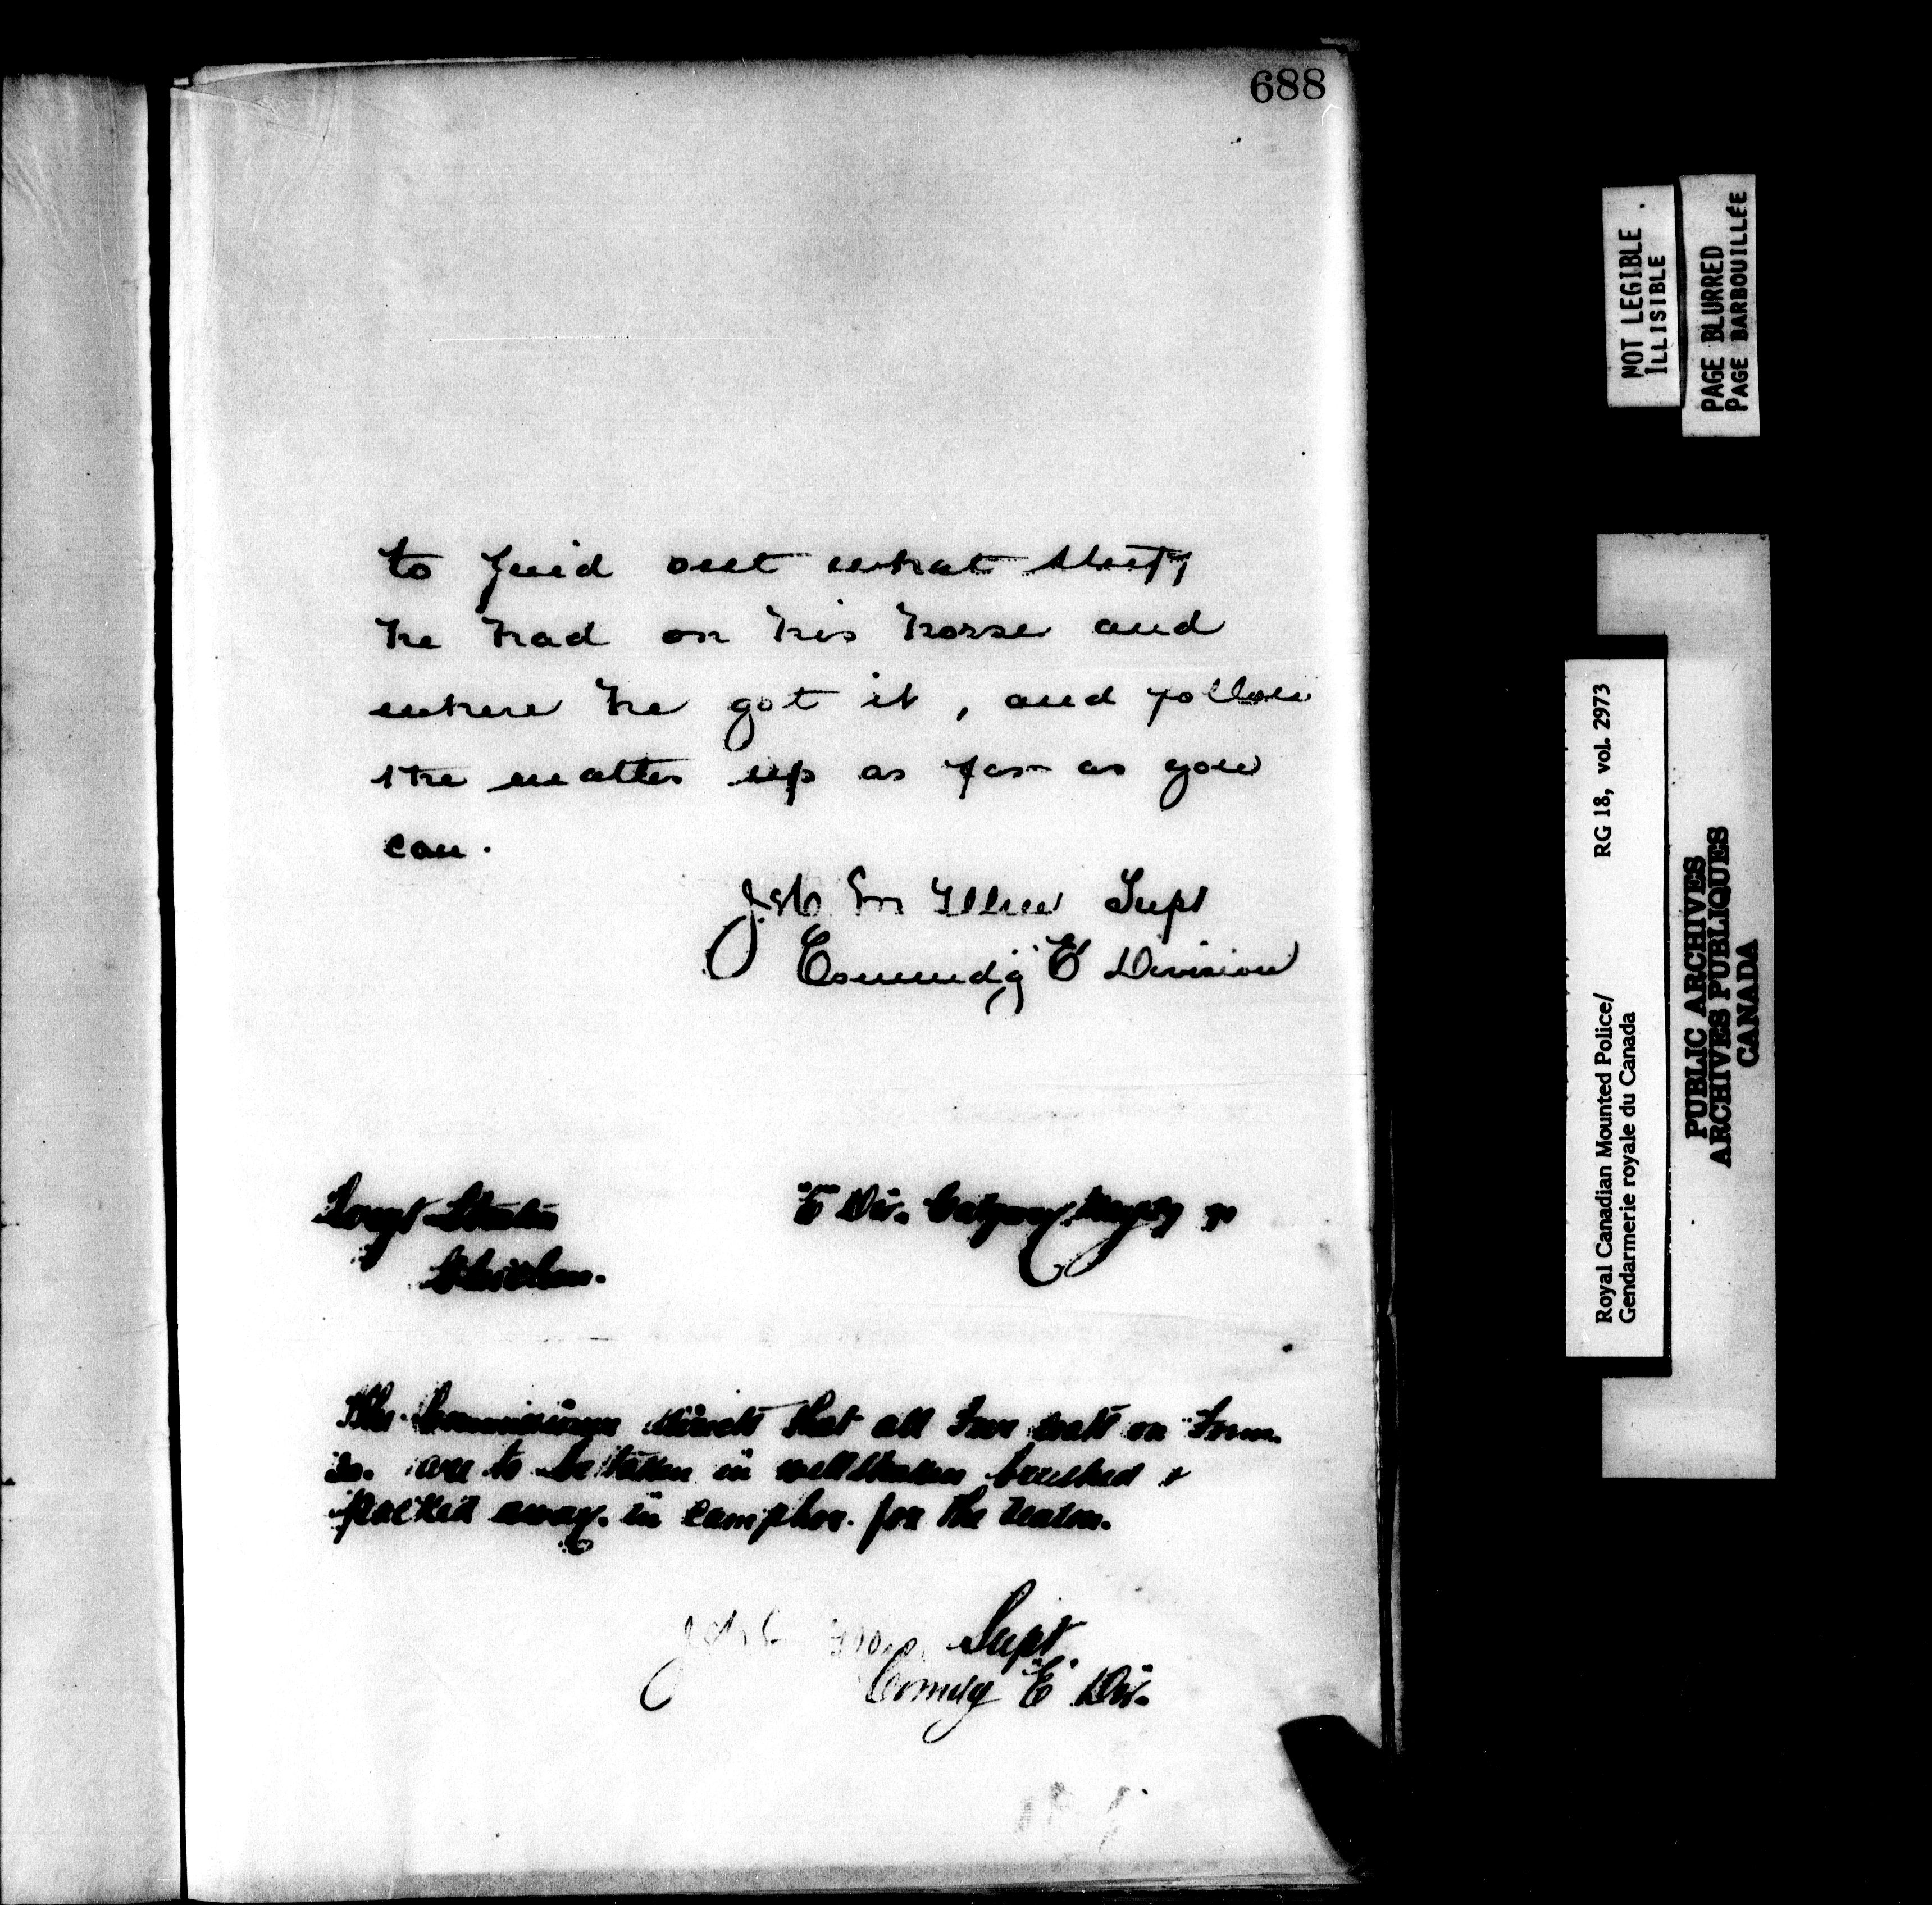 688
to find out what stuff
he had on his horse and
where he got it, and follow
the matter up as far as you
can.
Supt
Commdg "E" Division
"E" Div. Calgary
The Commissioner directs that all Fur coats on
are to be taken in well shaken brushed &
packed away. in camphor. for the season.
Supt.
Comdg "E" Div.
NOT LEGIBLE
ILLISIBLE
PAGE BLURRED
PAGE BARBOUILLÉE
Royal Canadian Mounted Police/
Gendarmerie royale du Canada
RG 18, vol. 2973
PUBLIC ARCHIVES
ARCHIVES PUBLIQUES
CANADA